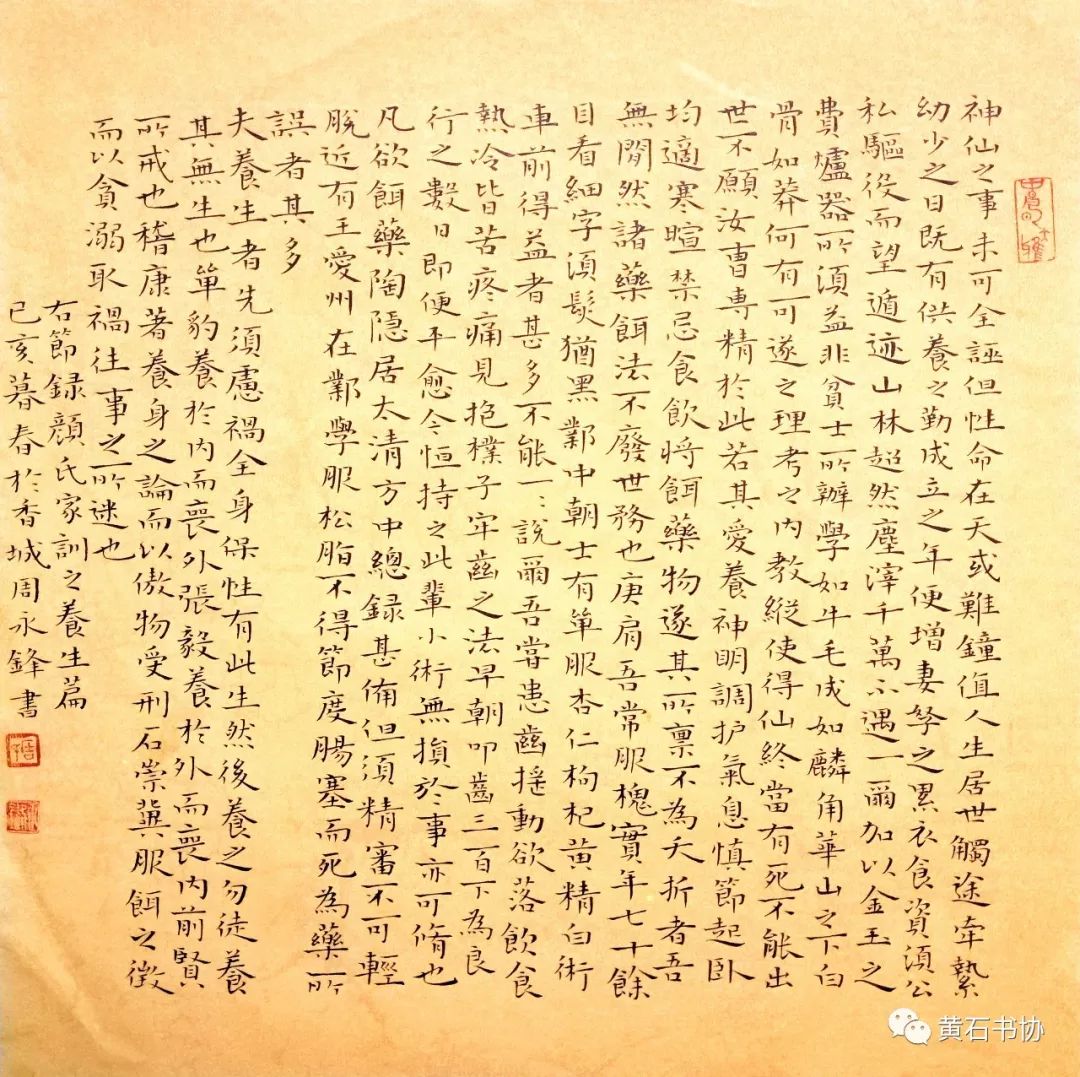 神仙之事未可全誣但性命在天或難鐘值人生居世觸途牽縶
幼少之日既有供養之勤成立之年便增妻孥之累衣食資須公
私驅役而望遁迹山林超然塵滓千萬不遇一爾加以金玉之
費爐器所須益非貧士所辦學如牛毛成如麟角華山之下白
骨如莽何有可遂之理考之內教縱使得仙終當有死不能出
世不願汝曹專精於此若其愛養神明調护氣息慎節起卧
均適寒暄禁忌食飲將餌藥物遂其所禀不為夭折者吾
無閒然諸藥餌法不廢世務也庚肩吾常服槐實年七十餘
目看細字須髮猶黑鄴中朝士有單服杏仁枸杞黃精白術
車前得益者甚多不能一ミ說爾吾嘗患齒搖動欲落飲食
熱冷皆苦疼痛見抱樸子牢齒之法早朝叩齒三百下為良
行之數日即便平愈今恒持之此輩小術無損於事亦可脩也
凡欲餌藥陶隱居太清方中總錄甚備但須精審不可輕
脫近有王愛州在鄴學服松脂不得節度腸塞而死為藥所
誤者其多
夫養生者先須慮禍全身保性有此生然後養之勿徒養
其無生也單豹養於內而喪外張毅養於外而喪內前賢
所戒也嵇康著養身之論而以傲物受刑石崇冀服餌之徵
而以貪溺取禍往事之所迷也
右節録顔氏家訓之養生篇
己亥暮春於香城周永鋒書
黄石书协